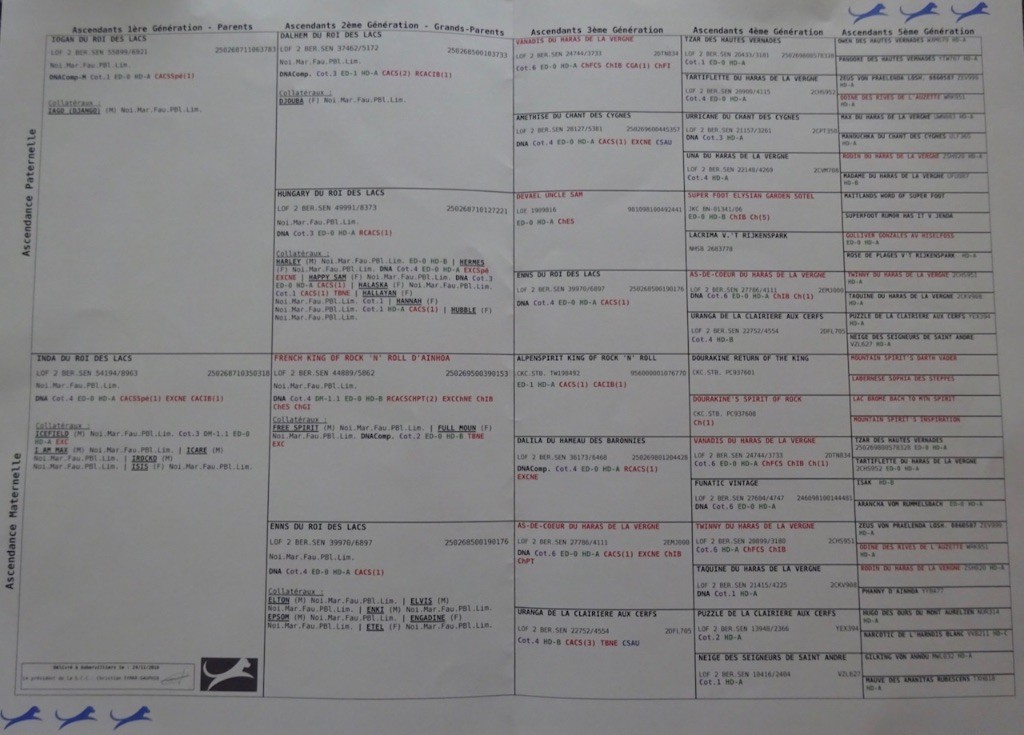 Ascendants 1ère Génération - Parents
Ascendance Paternelle
IOGAN DU ROI DES LACS
LOF 2 BER.SEN 55899/6921
Noi.Mar.Fau.PBl.Lim.
DNAComp-M Cot.1 ED-0 HD-A CACSSpé(1)
Collatéraux :
IAGO (DJANGO) (M) Noi.Mar.Fau.PBl.Lim.
Ascendance Maternelle
INDA DU ROI DES LACS
LOF 2 BER.SEN 54194/8963
Noi.Mar.Fau.PBl.Lim.
DNA Cot.4 ED-0 HD-A CACSSpé(1) EXCNE CACIB(1)
Collatéraux :
ICEFIELD (M) Noi.Mar.Fau.PBl.Lim. Cot.3 DM-1.1 ED-0
HD-A EXC
I AM MAX (M) Noi.Mar.Fau.PBl.Lim. | ICARE (M)
Noi.Mar.Fau.PBl.Lim. | IROCKO (M)
Noi.Mar.Fau.PBl.Lim. | ISIS (F) Noi.Mar.Fau.PBl.Lim.
Ascendants 2ème Génération - Grands-Parents
DALHEM DU ROI DES LACS
LOF 2 BER.SEN 37462/5172
Noi.Mar.Fau.PBl.Lim.
DNAComp. Cot.3 ED-1 HD-A CACS(2) RCACIB(1)
Collatéraux :
DJOUBA (F) Noi.Mar.Fau.PBl.Lim.
HUNGARY DU ROI DES LACS
LOF 2 BER.SEN 49991/8373 250268710127221
Noi.Mar.Fau.PBl.Lim.
DNA Cot.3 ED-0 HD-A RCACS(1)
Collatéraux :
HARLEY (M) Noi.Mar.Fau.PBl.Lim. ED-0 HD-B | HERMES
(F) Noi.Mar.Fau.PBl.Lim. DNA Cot.4 ED-0 HD-A EXCSpé
EXCNE | HAPPY SAM (F) Noi.Mar.Fau.PBl.Lim. DNA Cot.3
ED-0 HD-A CACS(1) | HALASKA (F) Noi.Mar.Fau.PBl.Lim.
Cot.1 CACS(1) TBNE | HALLAYAN (F)
Noi.Mar.Fau.PBl.Lim. Cot.1 | HANNAH (F)
Noi.Mar.Fau.PBl.Lim. Cot.1 HD-A CACS(1) | HUBBLE (F)
Noi.Mar.Fau.PBl.Lim.
FRENCH KING OF ROCK 'N' ROLL D'AINHOA
LOF 2 BER.SEN 44809/5862 250269500390153
Noi.Mar.Fau.PBl.Lim.
DNA Cot.4 DM-1.1 ED-0 HD-B RCACSCHPT(2) EXCChNE ChIB
ChES ChGI
Collatéraux :
FREE SPIRIT (M) Noi.Mar.Fau.PBl.Lim. | FULL MOUN (F)
Noi.Mar.Fau.PBl.Lim. DNAComp. Cot.2 ED-0 HD-B TBNE
EXC
ENNS DU ROI DES LACS
LOF 2 BER.SEN 39970/6897 250268500190176
Noi.Mar.Fau.PBl.Lim.
DNA Cot.4 ED-0 HD-A CACS(1)
Collatéraux :
ELTON (M) Noi.Mar.Fau.PBl.Lim. | ELVIS (M)
Noi.Mar.Fau.PBl.Lim. | ENKI (M) Noi.Mar.Fau.PBl.Lim.
EPSOM (M) Noi.Mar.Fau.PBl.Lim. | ENGADINE (F)
Noi.Mar.Fau.PBl.Lim. | ETEL (F) Noi.Mar.Fau.PBl.Lim.
Ascendants 3ème Génération
VANADIS DU HARAS DE LA VERGNE
LOF 2 BER.SEN 24744/3733 2DTN034
Cot.6 ED-0 HD-A ChFCS ChIB CGA(1) ChFI
AMETHISE DU CHANT DES CYGNES
LOF 2 BER.SEN 28127/5381
DNA Cot.4 ED-0 HD-A CACS(1) EXCNE CSAU
DEVAEL UNCLE SAM
LOE 1909816 981098100492441
ED-0 HD-A ChES
ENNS DU ROI DES LACS
LOF 2 BER.SEN 39970/6897 250268500190176
DNA Cot.4 ED-0 HD-A CACS(1)
ALPENSPIRIT KING OF ROCK 'N' ROLL
CKC.STB. TW198492 956000001076770
ED-1 HD-A CACS(1) CACIB(1)
DALILA DU HAMEAU DES BARONNIES
LOF 2 BER.SEN 36173/6468 250269801204428
DNAComp. Cot.4 ED-0 HD-A RCACS(1)
EXCNE
AS-DE-COEUR DU HARAS DE LA VERGNE
LOF 2 BER.SEN 27786/4111 2EMJ000
DNA Cot.6 ED-0 HD-A CACS(1) EXCNE ChIB
ChPT
URANGA DE LA CLAIRIERE AUX CERFS
LOF 2 BER.SEN 22752/4554 2DFL705
Cot.4 HD-B CACS(3) TBNE CSAU
Ascendants 4ème Génération
TZAR DES HAUTES VERNADES
Cot.1 ED-0 HD-A
TARTIFLETTE DU HARAS DE LA VERGNE
LOF 2 BER.SEN 20900/4115 2CHS952
Cot.4 ED-0 HD-A
URRICANE DU CHANT DES CYGNES
LOF 2 BER.SEN 21157/3261 2CPT350
DNA Cot.3 HD-A
UNA DU HARAS DE LA VERGNE
LOF 2 BER.SEN 22149/4269
Cot.4 HD-A
SUPER FOOT ELYSIAN GARDEN SOTEL
JKC BN-01341/06
ED-0 HD-B ChIB Ch(5)
LACRIMA V.'T RIJKENSPARK
NHSB 2603770
AS-DE-COEUR DU HARAS DE LA VERGNE
LOF 2 BER.SEN 27786/4111
DNA Cot.6 ED-0 HD-A ChIB Ch(1)
URANGA DE LA CLAIRIERE AUX CERFS
LOF 2 BER.SEN 22752/4554 2DFL705
Cot.4 HD-B
DOURAKINE RETURN OF THE KING
CKC.STB. PC937681
DOURAKINE'S SPIRIT OF ROCK
CKC.STB. PC937688
Ch(1)
VANADIS DU HARAS DE LA VERGNE
LOF 2 BER.SEN 24744/3733 2DTN034
Cot.6 ED-0 HD-A ChFCS ChIB Ch(1)
FUNATIC VINTAGE
LOF 2 BER.SEN 27604/4747
DNA Cot.6 ED-0 HD-A
TWINNY DU HARAS DE LA VERGNE
LOF 2 BER.SEN 20899/3180 2CHS951
Cot.6 HD-A ChFCS ChIB
TAQUINE DU HARAS DE LA VERGNE
LOF 2 BER.SEN 21415/4225 2CKV900
DNA Cot.1 HD-A
PUZZLE DE LA CLAIRIERE AUX CERFS
LOF 2 BER.SEN 13940/2366 YEX394
Cot.2 HD-A
NEIGE DES SEIGNEURS DE SAINT ANDRE
LOF 2 BER.SEN 10416/2404 VZL627
Cot.1 HD-A
Ascendants 5ème Génération
OWEN DES HAUTES VERNADES
PANDORE DES HAUTES VERNADES
ZEUS VON PRAELENDA
HD-A
REINE DES RIVES DE L'AUZETTE
HD-A
MAX DU HARAS DE LA VERGNE
HD-A
MANOUCHKA DU CHANT DES CYGNES
HD-A
RODIN DU HARAS DE LA VERGNE
MADAME DU HARAS DE LA VERGNE
HD-B
MAITLANDS WORD OF SUPER FOOT
SUPERFOOT RUMOR HAS IT V JENDA
GULLIVER GONZALES AV HISELFOSS
ED-0 HD-A
ROSE DE PLAGES V'T RIJKENSPARK HD-A
TWINNY DU HARAS DE LA VERGNE 2CHS951
HD-A
TAQUINE DU HARAS DE LA VERGNE 2CKV900
HD-A
PUZZLE DE LA CLAIRIERE AUX CERFS YEX394
HD-A
NEIGE DES SEIGNEURS DE SAINT ANDRE
VZL627 HD-A
MOUNTAIN SPIRIT'S DARTH VADER
LABERNESE SOPHIA DES STEPPES
LAC BROME BACH TO MTN SPIRIT
MOUNTAIN SPIRIT'S INSPIRATION
TZAR DES HAUTES VERNADES
ED-0 HD-A
TARTIFLETTE DU HARAS DE LA VERGNE
2CHS952 ED-0 HD-A
ISAK HD-B
ARANCHA VOM RUMMELSBACH ED-0 HD-A
ZEUS VON PRAELENDA
HD-A
REINE DES RIVES DE L'AUZETTE
RODIN DU HARAS DE LA VERGNE
PHANNY D'AINHOA
HUGO DES OURS DU MONT AURELIEN
HD-A
NARCOTIC DE L'HARMEIS BLANC
GILKING VON ANNOU HD-A
MAUVE DES AMANITAS RUBESCENS
HD-A